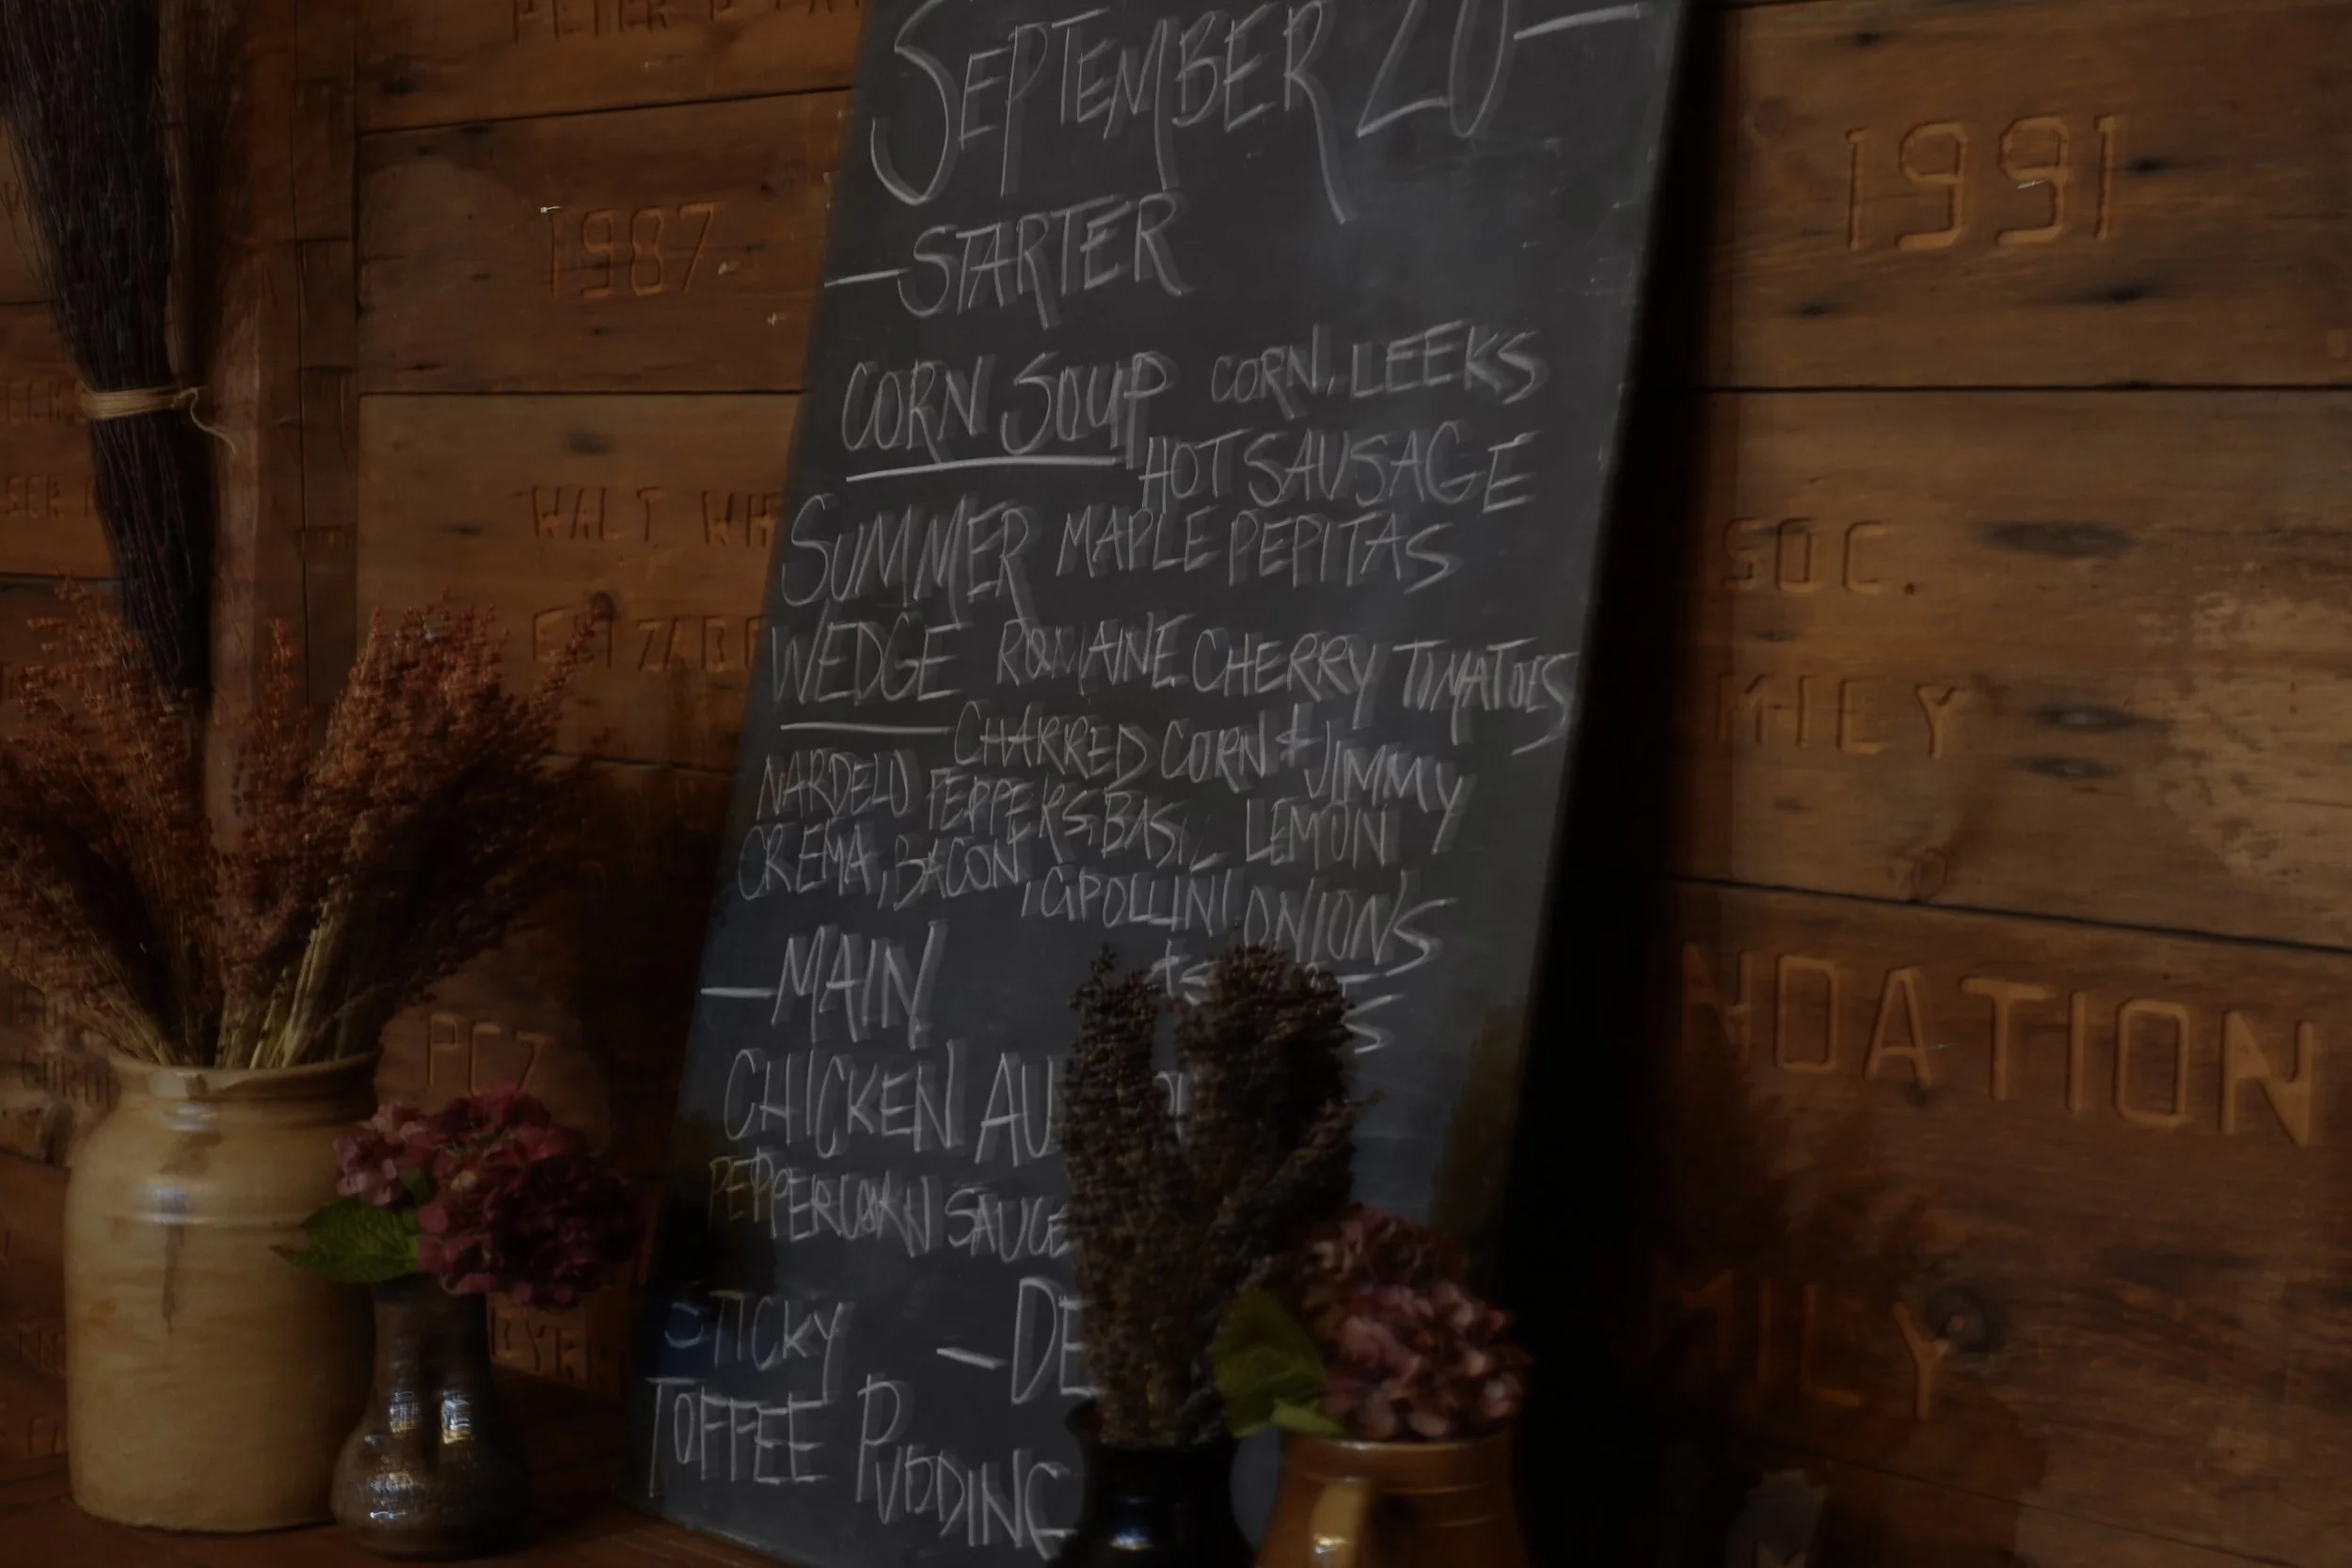 SEPTEMBER 20—
—STARTER
CORN SOUP CORN, LEEKS
HOT SAUSAGE
SUMMER MAPLE PEPITAS
WEDGE ROMAINE, CHERRY TOMATOES
CHARRED CORN & JIMMY
NARDELO PEPPERS, BASIL, LEMON
CREMA, BACON, CIPOLLINI ONIONS
—MAIN
CHICKEN AU
PEPPERCORN SAUCE
—DE
STICKY
TOFFEE PUDDING
1987
WALT WH
ELIZABE
1991
SOC.
MILY
NDATION
MILY